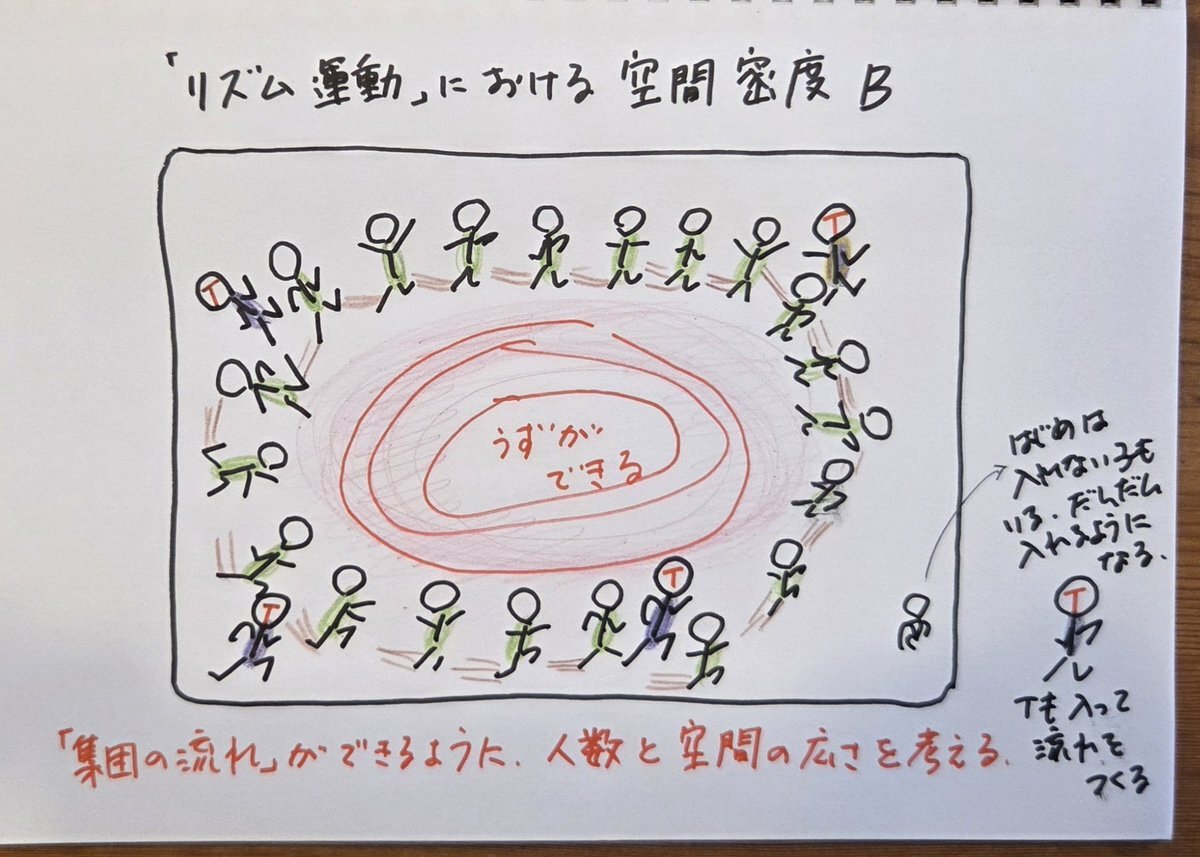 「リズム運動」における空間密度 B
T
T
うずが
できる
T
T
はじめは
入れない子も
いる. だんだん
入れるように
なる.
T
Tも入って
流れを
つくる
「集団の流れ」ができるように. 人数と空間の広さを考える.